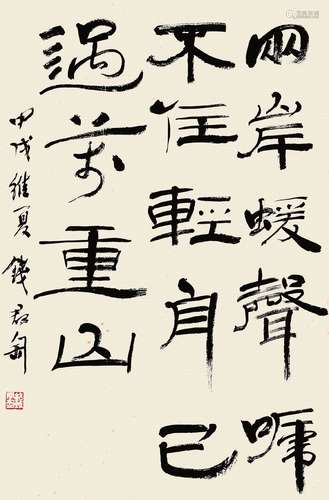 兩岸蝯聲啼
不住輕舟已
過萬重山
甲戌維夏 錢君匋